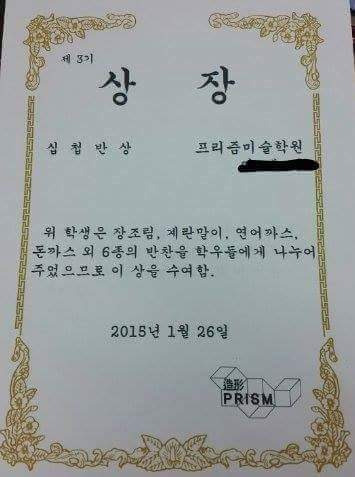 제 3기
상 장
십첩반상 프리즘미술학원
위 학생은 장조림, 계란말이, 연어까스,
돈까스 외 6종의 반찬을 학우들에게 나누어
주었으므로 이 상을 수여함.
2015년 1월 26일
造形
PRISM